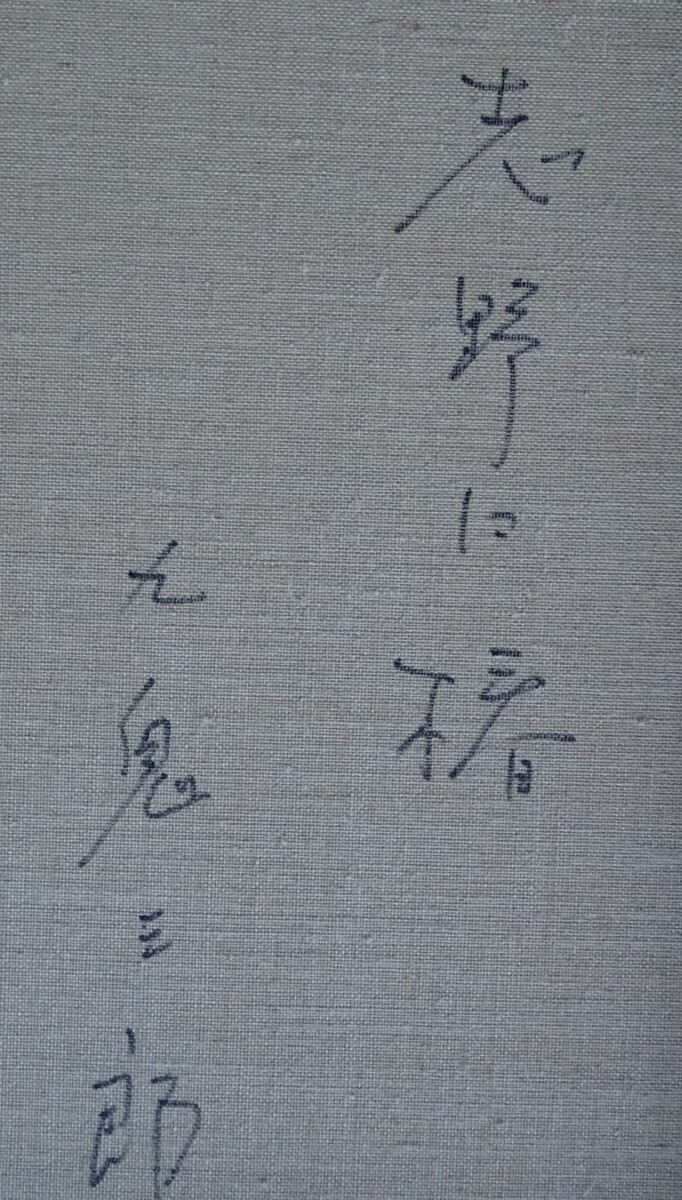 志野に椿
九鬼三郎